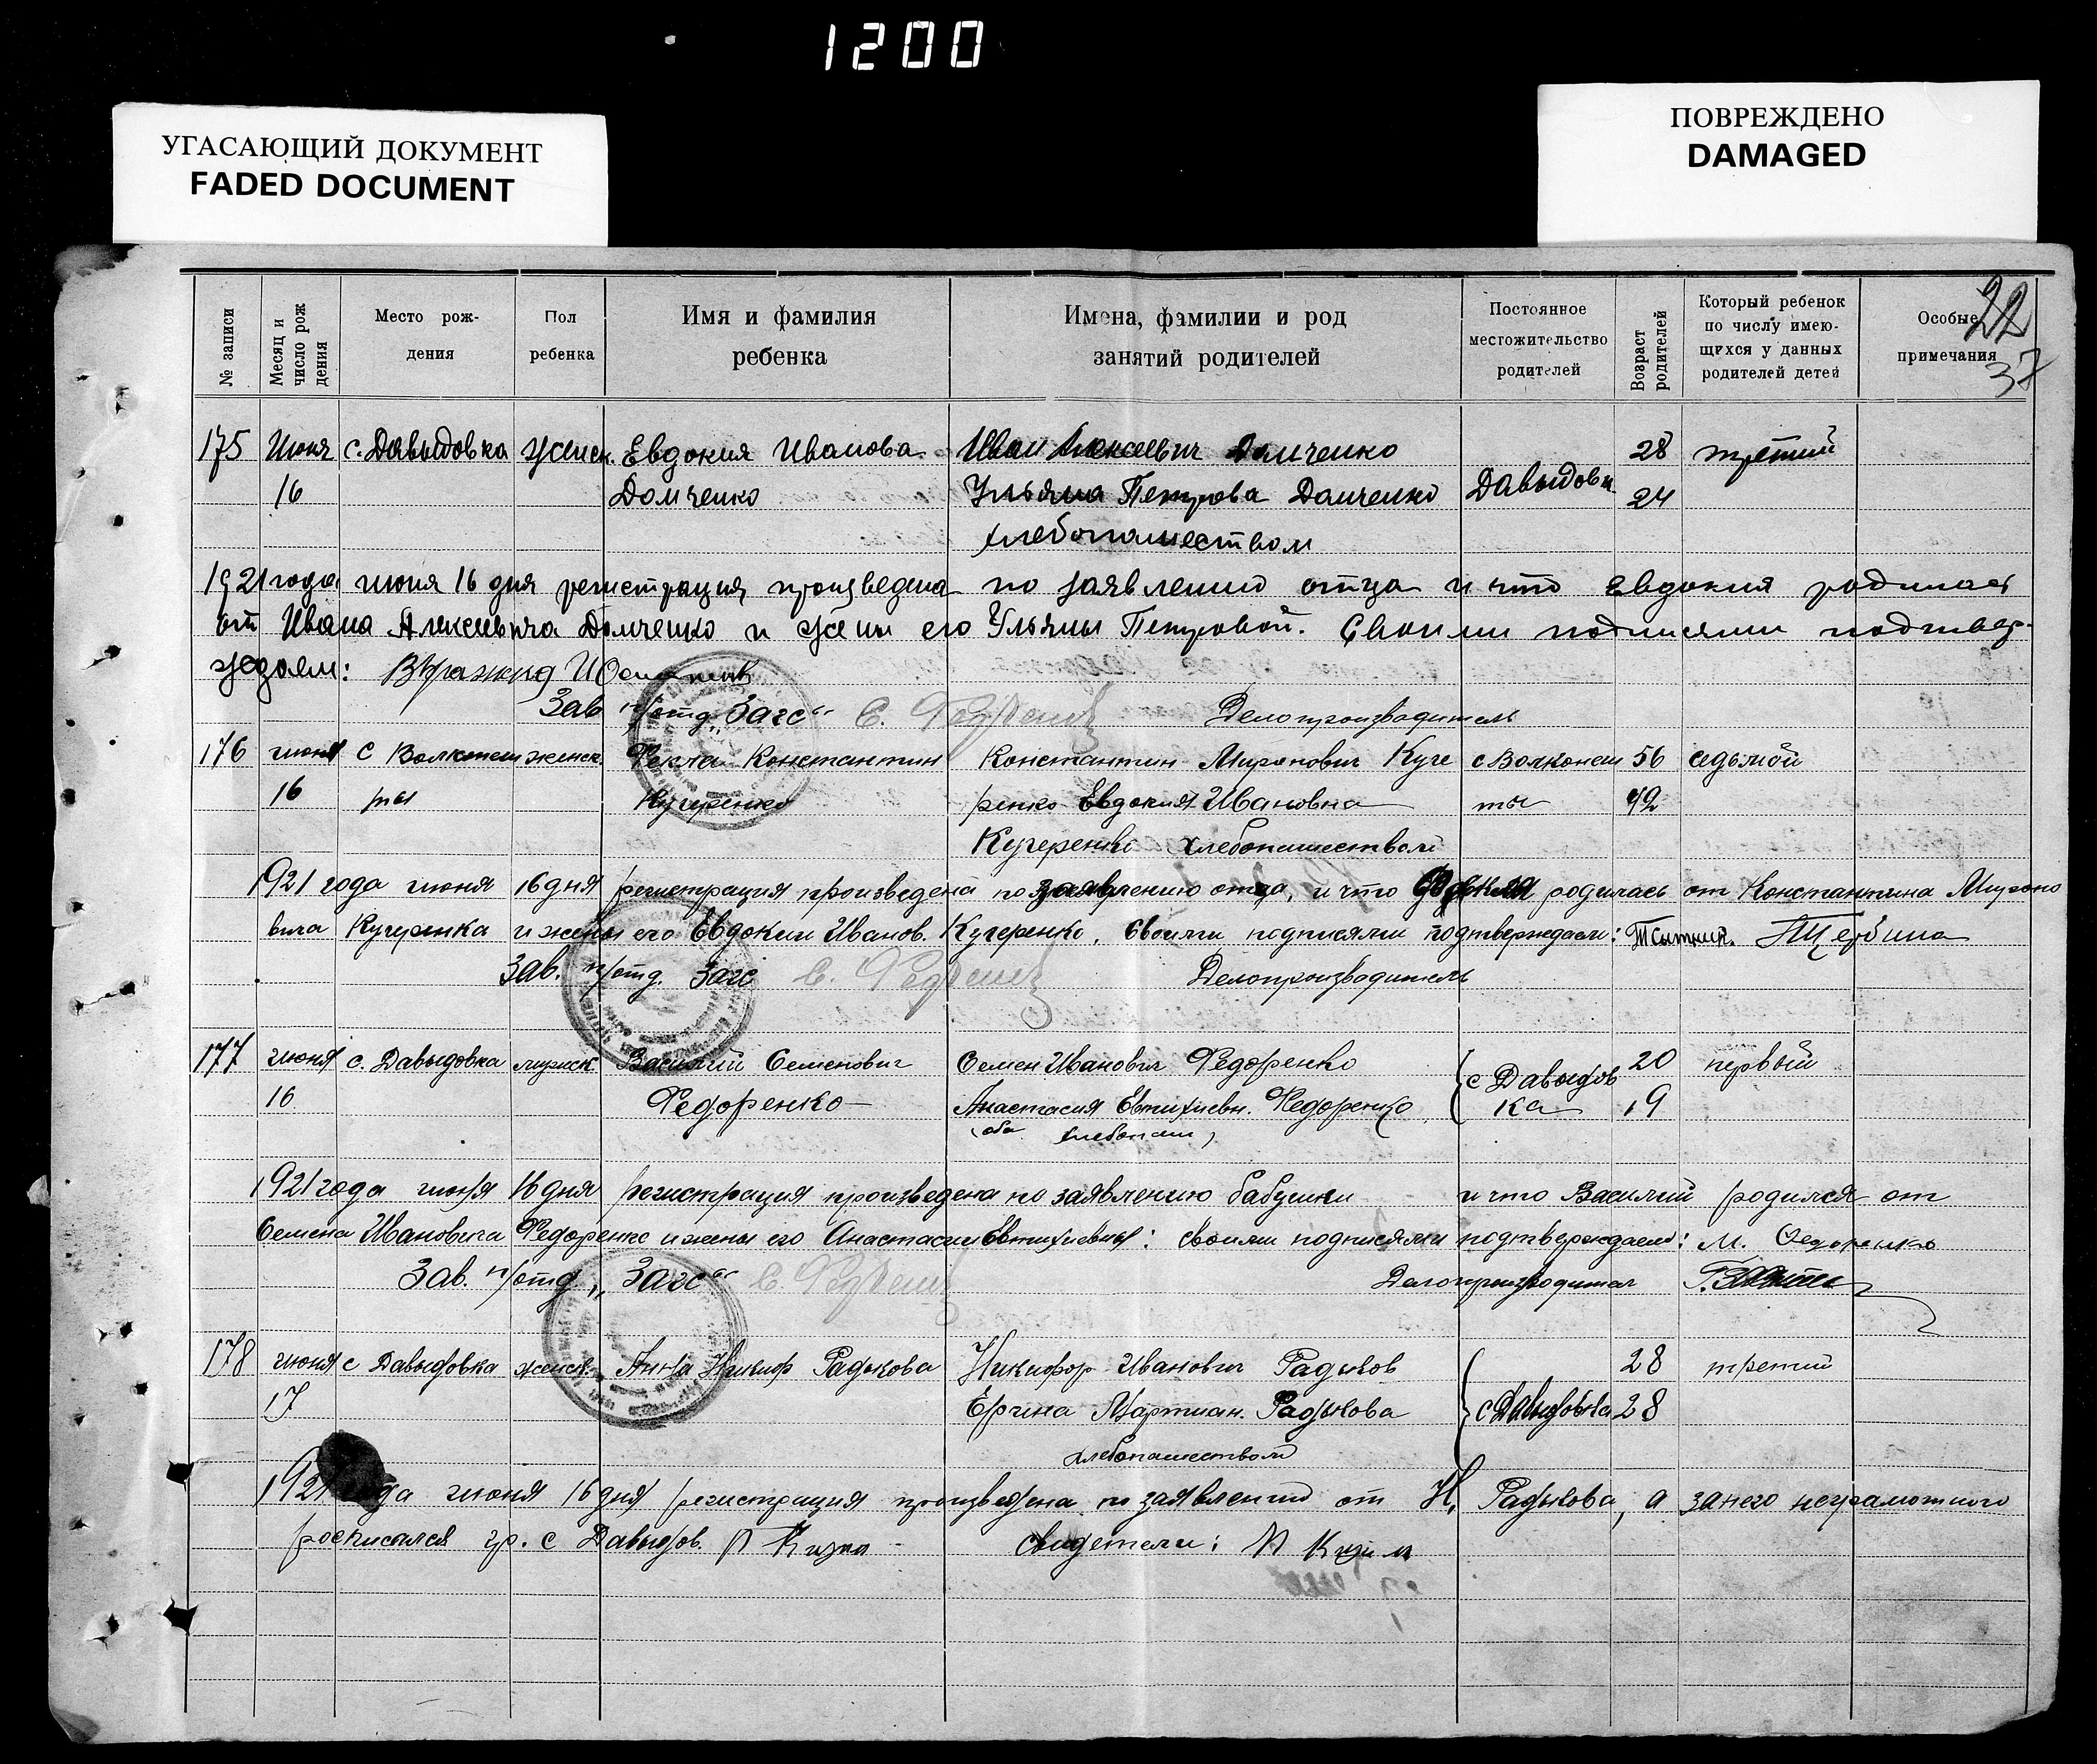 1200
УГАСАЮЩИЙ ДОКУМЕНТ
FADED DOCUMENT
ПОВРЕЖДЕНО
DAMAGED
22
37
№ записи
Месяц и число рож дения
Место рож-
дения
Пол
ребенка
Имя и фамилия
ребенка
Имена, фамилии и род
занятий родителей
Постоянное
местожительство
родителей
Возраст родителей
Который ребенок
по числу имею-
щихся у данных
родителей детей
Особые
примечания
175 Июня с. Давыдовка женск. Евдокия Иванова Иван Алексеевич Домченко 28 третий
16 Домченко Ульяна Петрова Домченко Давыдовк 24
хлебопашеством
1921 года июня 16 дня регистрация произведена по заявлению отца и что Евдокия родилась
от Ивана Алексеевича Домченко и жены его Ульяны Петровой. Своими подписями подтвер-
ждаем:
Зав п/отд. „Загс“ Делопроизводитель
176 июня с Волконеш женск Фекла Константин Константин Миронович Куче с Волконеш 56 седьмой
16 ты Кучеренко ренко Евдокия Ивановна ты 42
Кучеренко хлебопашеством
1921 года июня 16 дня регистрация произведена по заявлению отца, и что родилась от Константина Мироно
вича Кучеренка и жены его Евдокии Иванов. Кучеренко. Своими подписями подтверждаем: Щербина
Зав. п/отд. Загс Делопроизводитель
177 июня с. Давыдовка мужск Василий Семенович Семен Иванович Федоренко с Давыдов 20 первый
16 Федоренко Анастасия Евтихиевн. Федоренко ка 19
(оба хлебопаш)
1921 года июня 16 дня регистрация произведена по заявлению бабушки и что Василий родился от
Семена Ивановича Федоренко и жены его Анастасии Евтихиевны: своими подписями подтверждаем: М. Федоренко
Зав. п/отд. „Загс“ Делопроизводител
178 июня с Давыдовка женск. Анна Никиф Радыкова Никифор Иванович Радыков 28 третий
17 Ерина Мартиан. Радыкова с Давыдовка 28
хлебопашеством
1921 года июня 16 дня регистрация произведена по заявлению от Н. Радыкова, а за него неграмотного
росписался гр. с Давыдов. П Кизим свидетели: П Кизим